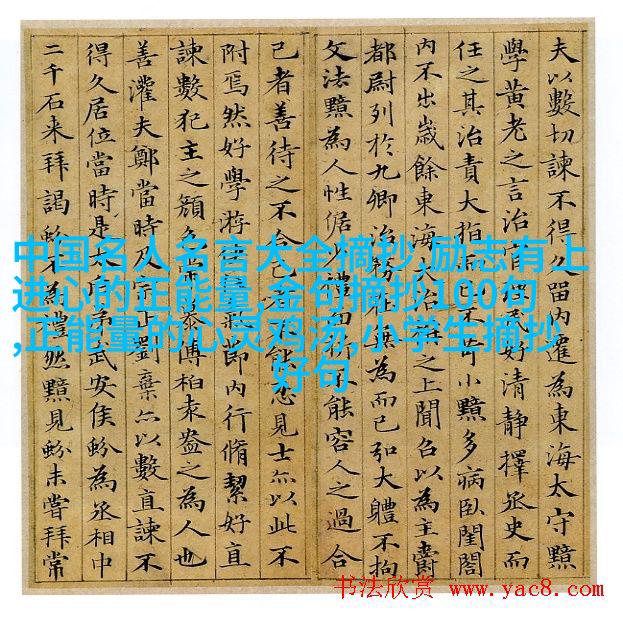 夫以數切諫不得久留內遷為東海太守黯
學黃老之言治官民好清静擇丞史而
任之其治責大指而不苛小黯多病臥閨閣
內不出歲餘東海大治之上聞召以為主爵
都尉列於九卿治務在無為而已弘大體不拘
文法黯為人性倨少禮面折不能容人之過合
己者善待之不合己者不能忍見士亦以此不
附焉然好學游俠節內行脩絜好直
諫數犯主之顏色常慕傅柏袁盎之為人也
善灌夫鄭當時及宗正劉棄亦以數直諫不
得久居位當時是太后弟武安侯蚡為丞相中
二千石来拜謁蚡不為禮然黯見蚡未嘗拜常
中国名人名言大全摘抄,励志有上
进心的正能量,金句摘抄100句
,正能量的心灵鸡汤,小学生摘抄
好句
书法欣赏 www.yac8.com